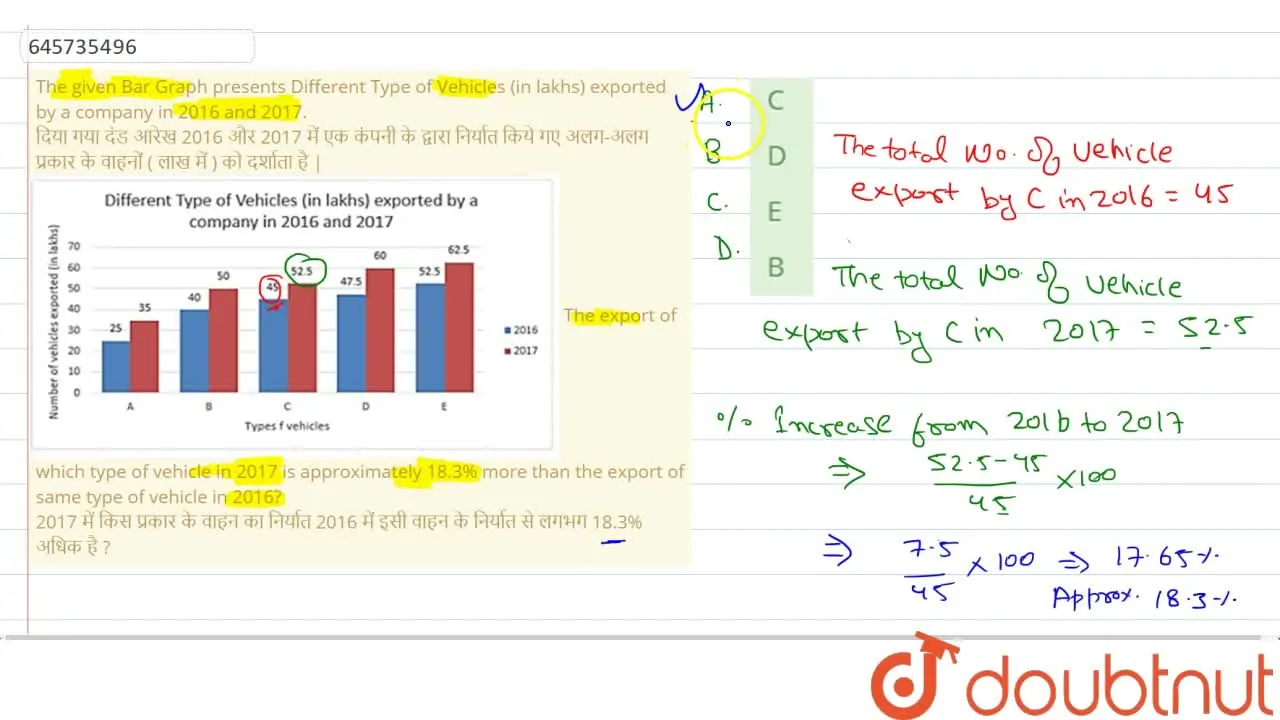 645735496
The given Bar Graph presents Different Type of Vehicles (in lakhs) exported
by a company in 2016 and 2017.
दिया गया दंड आरेख 2016 और 2017 में एक कंपनी के द्वारा निर्यात किये गए अलग-अलग
प्रकार के वाहनों ( लाख में ) को दर्शाता है |
Different Type of Vehicles (in lakhs) exported by a
company in 2016 and 2017
Number of vehicles exported (in lakhs)
70
60
50
40
30
20
10
0
25
35
40
50
45
52.5
47.5
60
52.5
62.5
A
B
C
D
E
Types f vehicles
2016
2017
The export of
which type of vehicle in 2017 is approximately 18.3% more than the export of
same type of vehicle in 2016?
2017 में किस प्रकार के वाहन का निर्यात 2016 में इसी वाहन के निर्यात से लगभग 18.3%
अधिक है ?
A. C
B D
C. E
D. B
The total No. of vehicle
export by C in 2016 = 45
The total No. of vehicle
export by C in 2017 = 52.5
% Increase from 2016 to 2017
⇒ 52.5-45/45 ×100
⇒ 7.5/45 ×100 ⇒ 17.65%
Approx. 18.3%
doubtnut